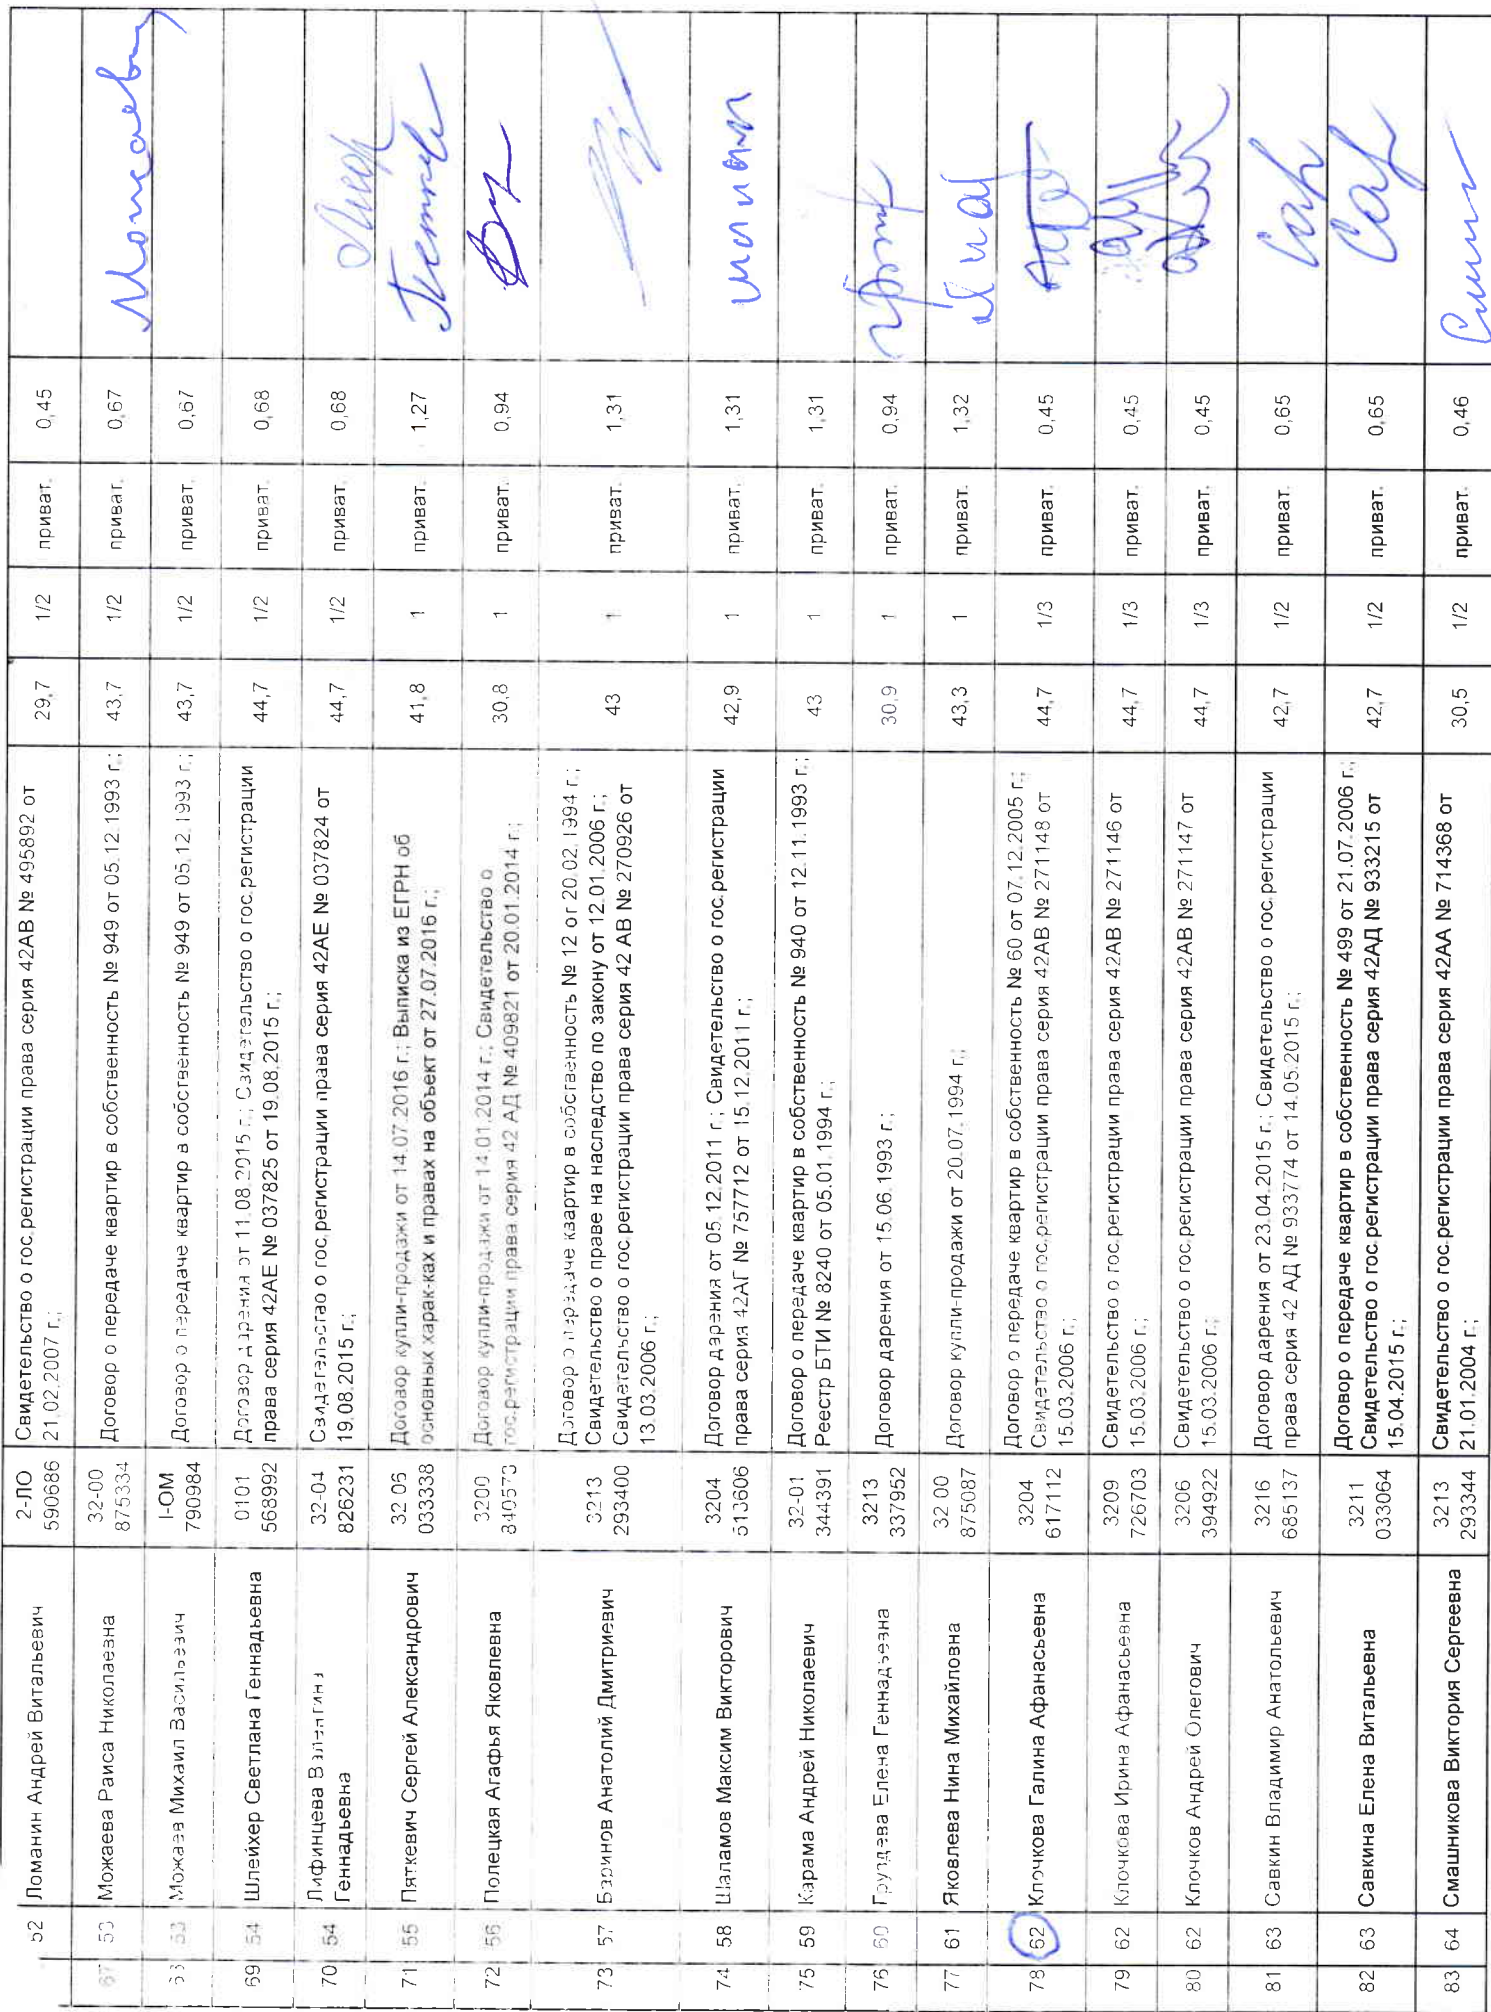 52 Ломанин Андрей Витальевич 2-ЛО 590686 Свидетельство о гос.регистрации права серия 42АВ № 495892 от 21.02.2007 г.; 29,7 1/2 приват. 0,45
67 53 Можаева Раиса Николаевна 32-00 875334 Договор о передаче квартир в собственность № 949 от 05.12.1993 г.; 43,7 1/2 приват. 0,67
53 Можаев Михаил Васильевич I-ОМ 790984 Договор о передаче квартир в собственность № 949 от 05.12.1993 г.; 43,7 1/2 приват. 0,67
69 54 Шлейхер Светлана Геннадьевна 0101 568992 Договор дарения от 11.08.2015 г.; Свидетельство о гос.регистрации права серия 42АЕ № 037825 от 19.08.2015 г.; 44,7 1/2 приват. 0,68
70 54 Лифинцева Валентина Геннадьевна 32-04 826231 Свидетельство о гос.регистрации права серия 42АЕ № 037824 от 19.08.2015 г.; 44,7 1/2 приват. 0,68
71 55 Пяткевич Сергей Александрович 32 05 033338 Договор купли-продажи от 14.07.2016 г.; Выписка из ЕГРН об основных харак-ках и правах на объект от 27.07.2016 г.; 41,8 1 приват. 1,27
72 56 Полецкая Агафья Яковлевна 3200 840573 Договор купли-продажи от 14.01.2014 г.; Свидетельство о гос.регистрации права серия 42 АД № 409821 от 20.01.2014 г.; 30,8 1 приват. 0,94
73 57 Баринов Анатолий Дмитриевич 3213 293400 Договор о передаче квартир в собственность № 12 от 20.02.1994 г.; Свидетельство о праве на наследство по закону от 12.01.2006 г.; Свидетельство о гос.регистрации права серия 42 АВ № 270926 от 13.03.2006 г.; 43 1 приват. 1,31
74 58 Шаламов Максим Викторович 3204 513606 Договор дарения от 05.12.2011 г.; Свидетельство о гос.регистрации права серия 42АГ № 757712 от 15.12.2011 г.; 42,9 1 приват. 1,31
75 59 Карама Андрей Николаевич 32-01 344391 Договор о передаче квартир в собственность № 940 от 12.11.1993 г.; Реестр БТИ № 8240 от 05.01.1994 г.; 43 1 приват. 1,31
76 60 Груздева Елена Геннадьевна 3213 337952 Договор дарения от 15.06.1993 г.; 30,9 1 приват. 0,94
77 61 Яковлева Нина Михайловна 32 00 875087 Договор купли-продажи от 20.07.1994 г.; 43,3 1 приват. 1,32
78 62 Клочкова Галина Афанасьевна 3204 617112 Договор о передаче квартир в собственность № 60 от 07.12.2005 г.; Свидетельство о гос.регистрации права серия 42АВ № 271148 от 15.03.2006 г.; 44,7 1/3 приват. 0,45
79 62 Клочкова Ирина Афанасьевна 3209 726703 Свидетельство о гос.регистрации права серия 42АВ № 271146 от 15.03.2006 г.; 44,7 1/3 приват. 0,45
80 62 Клочков Андрей Олегович 3206 394922 Свидетельство о гос.регистрации права серия 42АВ № 271147 от 15.03.2006 г.; 44,7 1/3 приват. 0,45
81 63 Савкин Владимир Анатольевич 3216 685137 Договор дарения от 23.04.2015 г.; Свидетельство о гос.регистрации права серия 42 АД № 933774 от 14.05.2015 г.; 42,7 1/2 приват. 0,65
82 63 Савкина Елена Витальевна 3211 033064 Договор о передаче квартир в собственность № 499 от 21.07.2006 г.; Свидетельство о гос.регистрации права серия 42АД № 933215 от 15.04.2015 г.; 42,7 1/2 приват. 0,65
83 64 Смашникова Виктория Сергеевна 3213 293344 Свидетельство о гос.регистрации права серия 42АА № 714368 от 21.01.2004 г.; 30,5 1/2 приват. 0,46